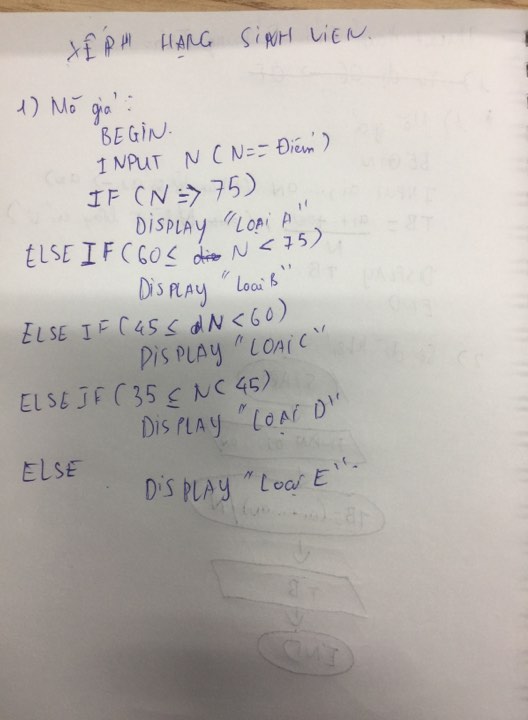 XẾPH HẠNG SINH VIÊN.
1) Mã giả:
BEGIN.
INPUT N (N== Điểm)
IF (N => 75)
DISPLAY "LOẠI A"
ELSE IF (60 ≤ N < 75)
DISPLAY "Loại B"
ELSE IF (45 ≤ N < 60)
DISPLAY "LOẠI C"
ELSE IF (35 ≤ N < 45)
DISPLAY "LOẠI D"
ELSE
DISPLAY "Loại E".